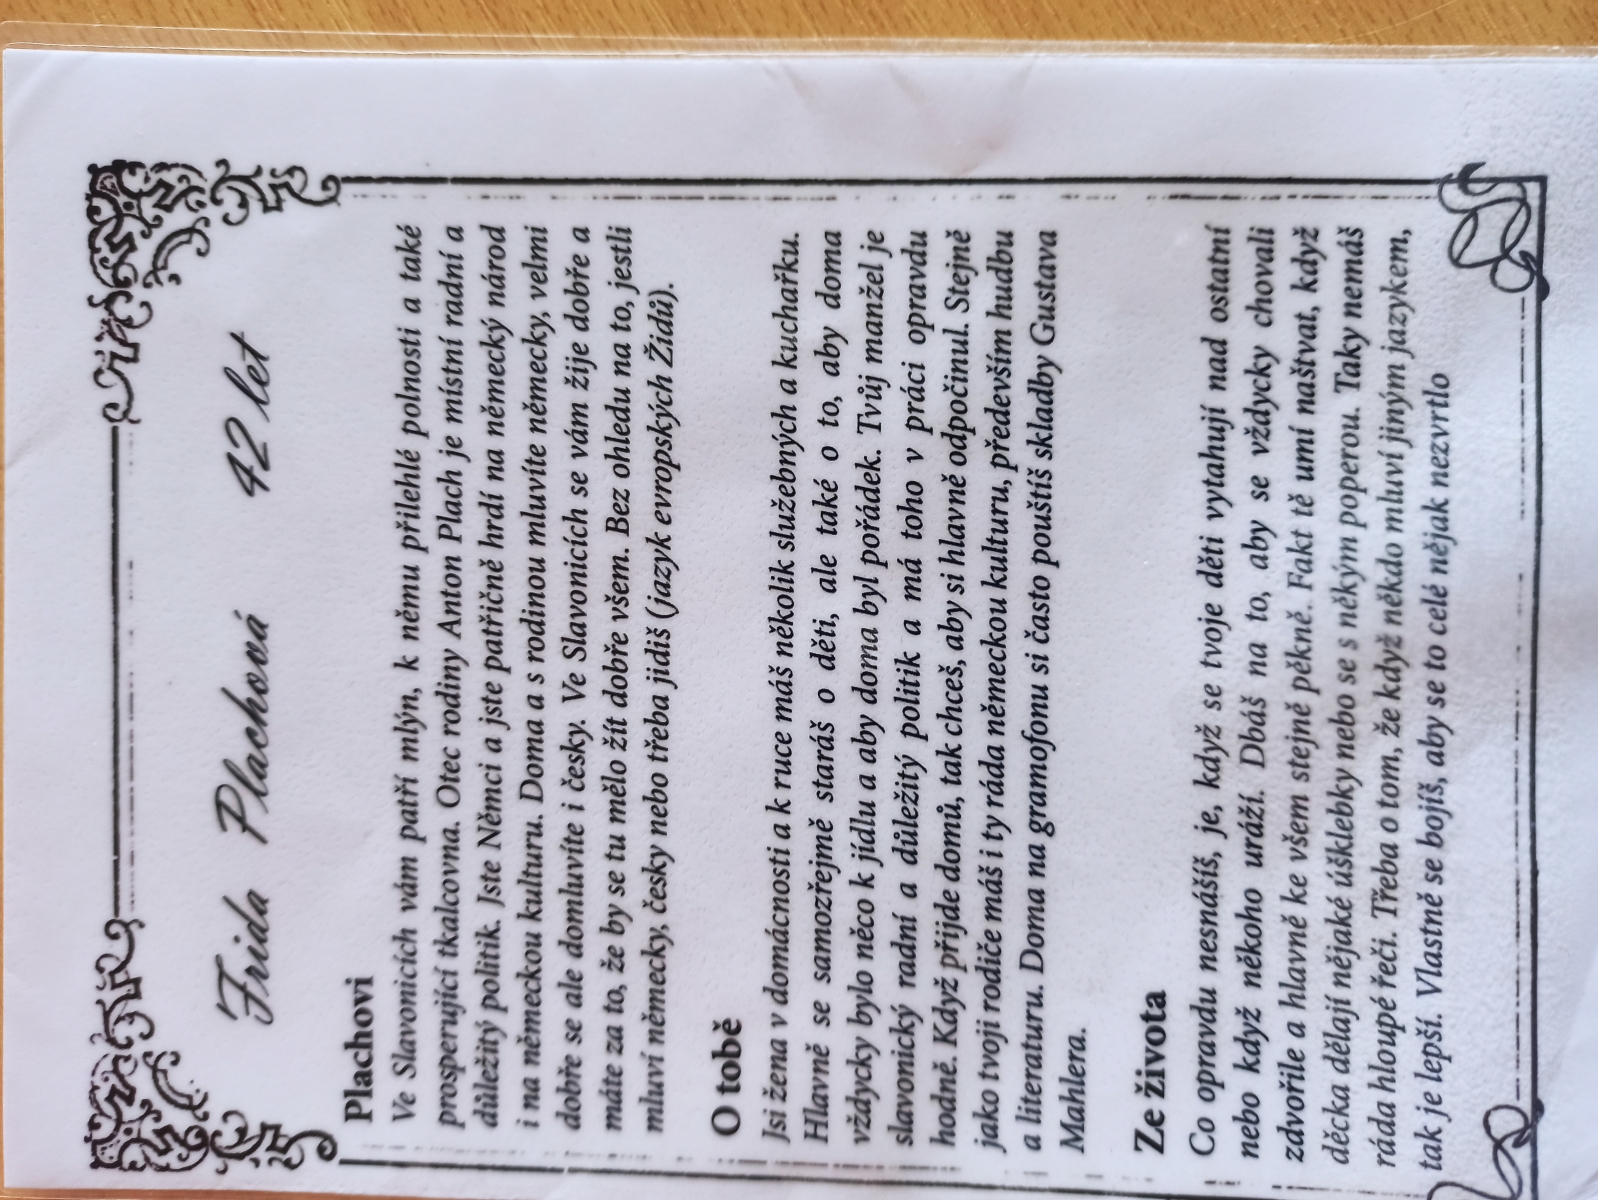 Frida Plachová 42 let
Plachovi
Ve Slavonicích vám patří mlýn, k němu přilehlé polnosti a také
prosperující tkalcovna. Otec rodiny Anton Plach je místní radní a
důležitý politik. Jste Němci a jste patřičně hrdí na německý národ
i na německou kulturu. Doma a s rodinou mluvíte německy, velmi
dobře se ale domluvíte i česky. Ve Slavonicích se vám žije dobře a
máte za to, že by se tu mělo žít dobře všem. Bez ohledu na to, jestli
mluví německy, česky nebo třeba jidiš (jazyk evropských Židů).
O tobě
Jsi žena v domácnosti a k ruce máš několik služebných a kuchařku.
Hlavně se samozřejmě staráš o děti, ale také o to, aby doma
vždycky bylo něco k jídlu a aby doma byl pořádek. Tvůj manžel je
slavonický radní a důležitý politik a má toho v práci opravdu
hodně. Když přijde domů, tak chceš, aby si hlavně odpočinul. Stejně
jako tvoji rodiče máš i ty ráda německou kulturu, především hudbu
a literaturu. Doma na gramofonu si často pouštíš skladby Gustava
Mahlera.
Ze života
Co opravdu nesnášíš, je, když se tvoje děti vytahují nad ostatní
nebo když někoho uráží. Dbáš na to, aby se vždycky chovali
zdvořile a hlavně ke všem stejně pěkně. Fakt tě umí naštvat, když
děcka dělají nějaké úšklebky nebo se s někým poperou. Taky nemáš
ráda hloupé řeči. Třeba o tom, že když někdo mluví jiným jazykem,
tak je lepší. Vlastně se bojíš, aby se to celé nějak nezvrtlo